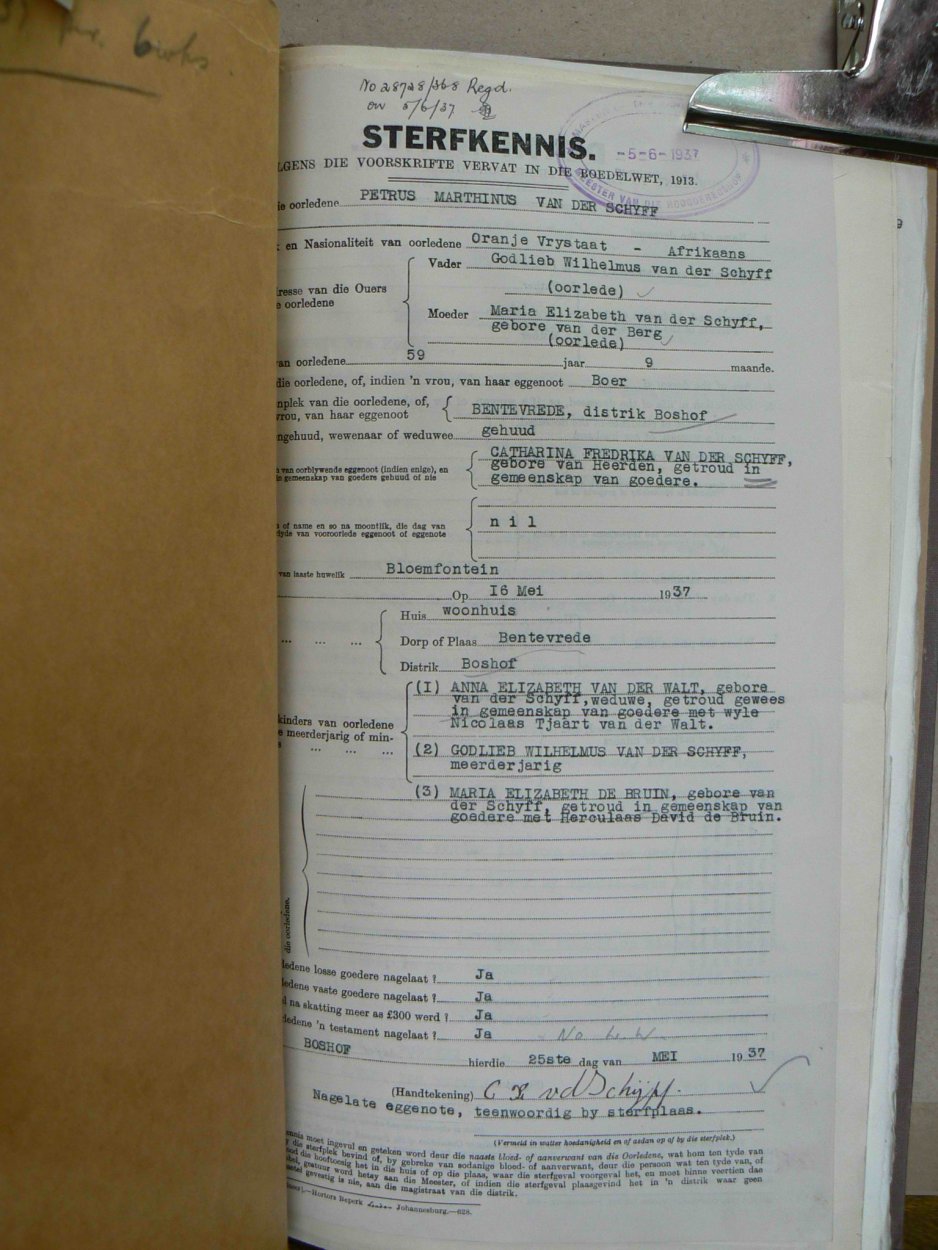 books
No 28728/368 Regd.
on 5/6/37
STERFKENNIS.
LGENS DIE VOORSKRIFTE VERVAT IN DIE BOEDELWET, 1913.
-5-6-1937
MEESTER VAN DIE HOOGGEREGSHOF
ie oorledene PETRUS MARTHINUS VAN DER SCHYFF
en Nasionaliteit van oorledene Oranje Vrystaat - Afrikaans
resse van die Ouers
e oorledene
Vader Godlieb Wilhelmus van der Schyff
(oorlede)
Moeder Maria Elizabeth van der Schyff,
gebore van der Berg
(oorlede)
van oorledene 59 jaar 9 maande.
die oorledene, of, indien 'n vrou, van haar eggenoot Boer
nplek van die oorledene, of,
vrou, van haar eggenoot
BENTEVREDE, distrik Boshof
ngehuud, wewenaar of weduwee gehuud
van oorblywende eggenoot (indien enige), en
in gemeenskap van goedere gehuud of nie
CATHARINA FREDRIKA VAN DER SCHYFF,
gebore van Heerden, getroud in
gemeenskap van goedere.
of name en so na moontlik, die dag van
lyde van vooroorlede eggenoot of eggenote
n i l
van laaste huwelik Bloemfontein
Op 16 Mei 1937
Huis woonhuis
... ... ... Dorp of Plaas Bentevrede
Distrik Boshof
kinders van oorledene
e meerderjarig of min-
... ... ...
(I) ANNA ELIZABETH VAN DER WALT, gebore
van der Schyff,weduwe, getroud gewees
in gemeenskap van goedere met wyle
Nicolaas Tjaart van der Walt.
(2) GODLIEB WILHELMUS VAN DER SCHYFF,
meerderjarig
(3) MARIA ELIZABETH DE BRUIN, gebore van
der Schyff, getroud in gemeenskap van
goedere met Herculaas David de Bruin.
die oorledene.
ledene losse goedere nagelaat? Ja
ledene vaste goedere nagelaat? Ja
d na skatting meer as £300 werd? Ja
ledene 'n testament nagelaat? Ja
BOSHOF hierdie 25ste dag van MEI 1937
(Handtekening) C F vd Schijff.
Nagelate eggenote, teenwoordig by sterfplaas.
(Vermeld in watter hoedanigheid en of aldan op of by die sterfplek.)
ennis moet ingevul en geteken word deur die naaste bloed- of aanverwant van die Oorledene, wat hom ten tyde van
die sterfplek bevind of, by gebreke van sodanige bloed- of aanverwant, deur die persoon wat ten tyde van, of
die hooftoesig het in die huis of op die plaas, waar die sterfgeval voorgeval het, en moet binne veertien dae
gestuur word hetsy aan die Meester, of indien die sterfgeval plaasgevind het in 'n distrik waar geen
gevestig is nie, aan die magistraat van die distrik.
Hortors Beperk Johannesburg.—628.